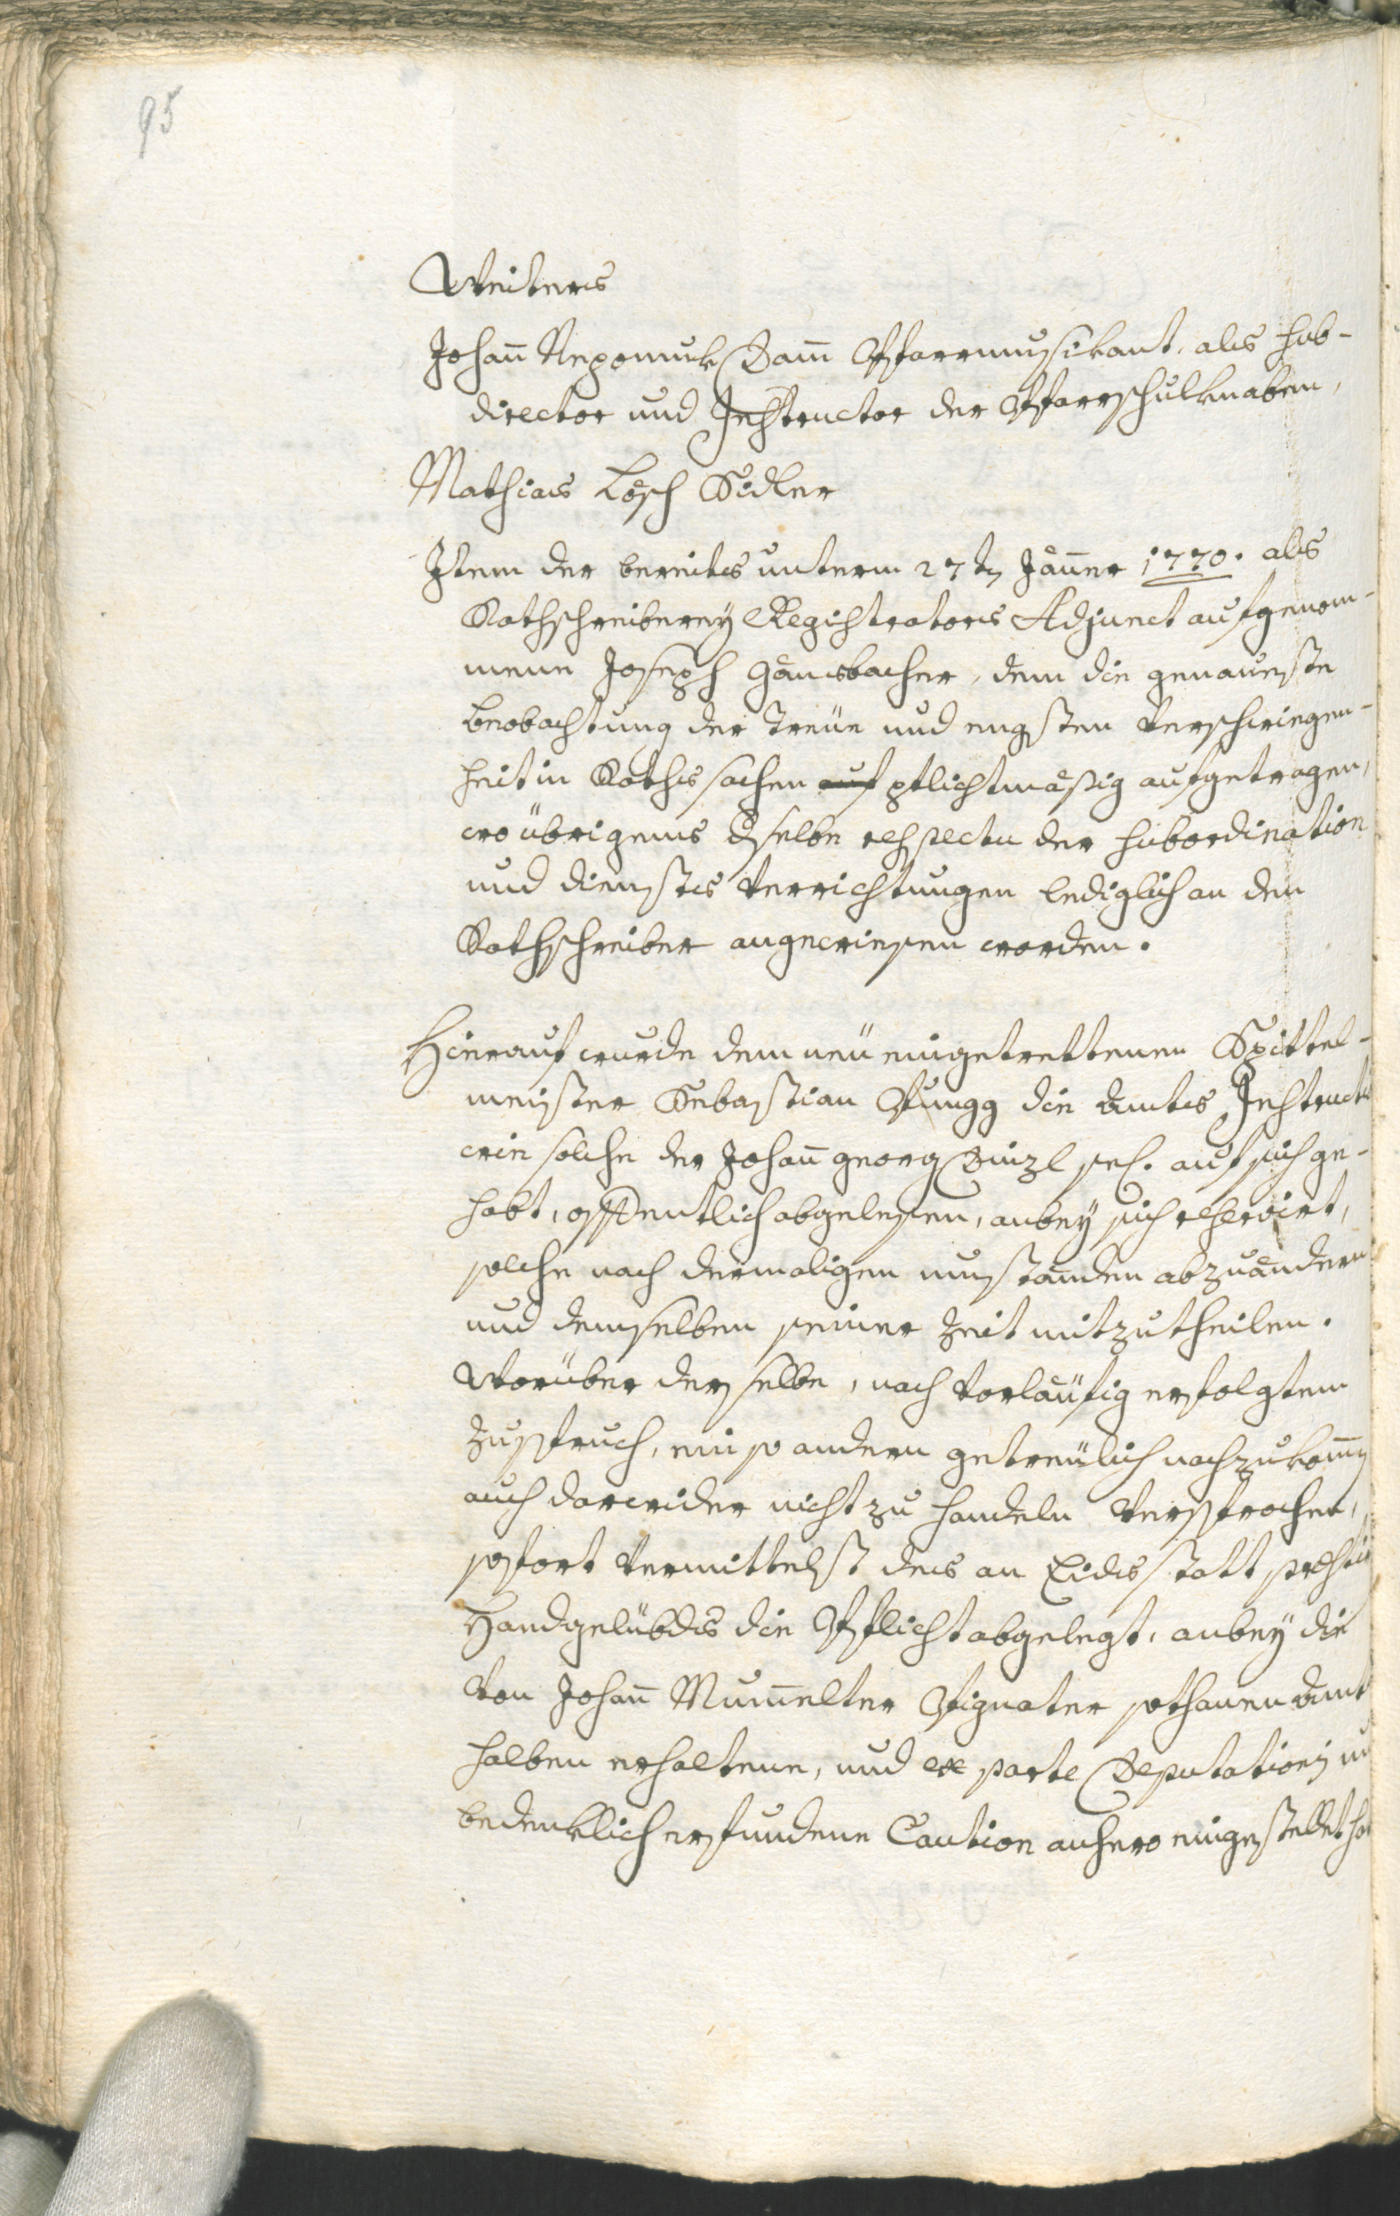 95
Weiters
Johann Nepomuk Damm Pfarrmusikant, als Sub-
director und Instructor der Pfarrschulknaben,
Mathias Lösch Sidler
Item der bereits unterm 27tn Jänner 1770. als
Rathschreiberey Registrators Adjunct aufgenom-
mene Joseph Gänsbacher, dem die genaueste
beobachtung der Treüe und engsten Verschwiegen-
heit in Raths sachen auf pflichtmäßig aufgetragen,
wo übrigens dselbe respectu der subordination
und dienstes Verrichtungen lediglich an den
Rathschreiber angewiesen worden.
Hierauf wurde dem neü eingetrettenen Spittel-
meister Sebastian Pfungg die Amts Instruct
wie solche der Johann georg Dinzl sel. auf sich ge-
habt, offentlich abgelesen, anbey sich reservirt,
solche nach dermaligen umständen abzuändern
und demselben seiner Zeit mitzutheilen.
Worüber derselbe, nach Vorläufig erfolgtem
Zuspruch, ein so andern getreülich nachzukomm
auch darwider nicht zu handeln Versprochen,
sofort Vermittelst des an Eides statt
Handgelübds die Pflicht abgelegt, anbey die
Von Johann Mumelter Pignater sothanen Amt
halben erhaltene, und ex parte Deputationis un
bedenklich erfundene Caution anhero eingestellet ha